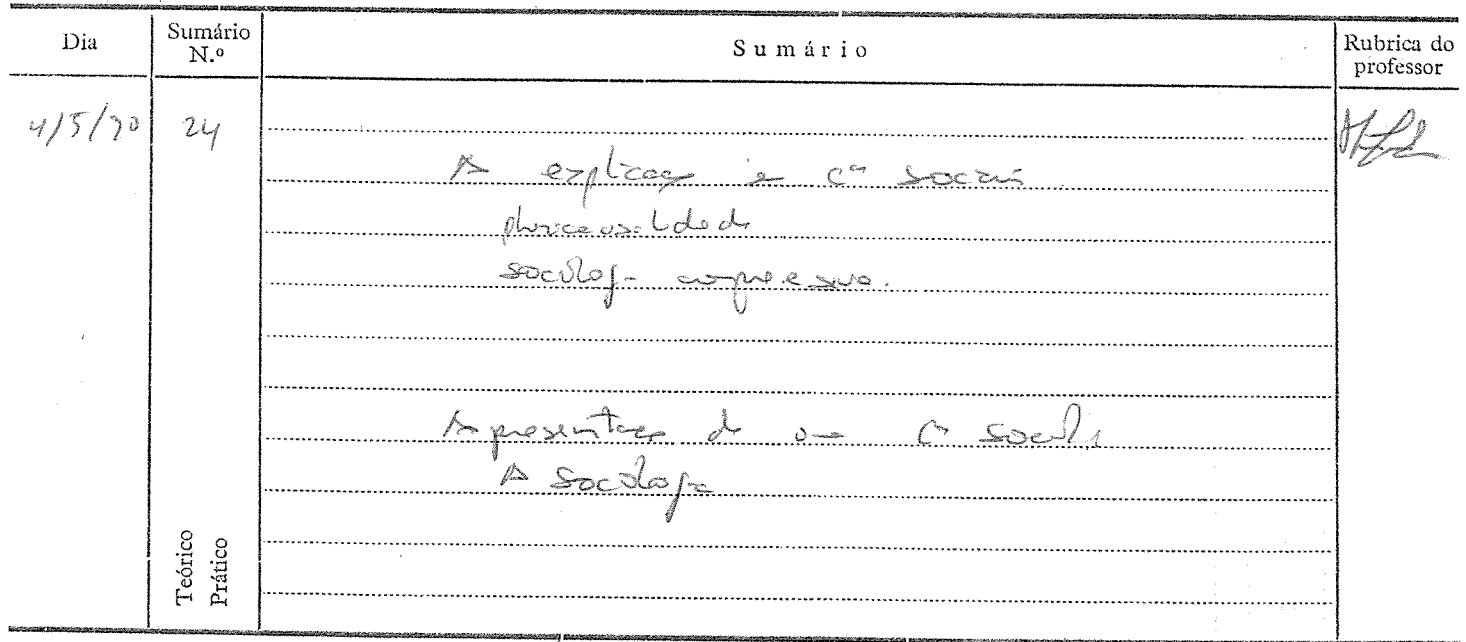 Dia
Sumário N.º
Sumário
Rubrica do professor
4/5/90
24
A explicação em Cª sociais
pluricausalidade
sociologia compreensiva.
Apresentação de uma Cª social
A Sociologia
Teórico
Prático